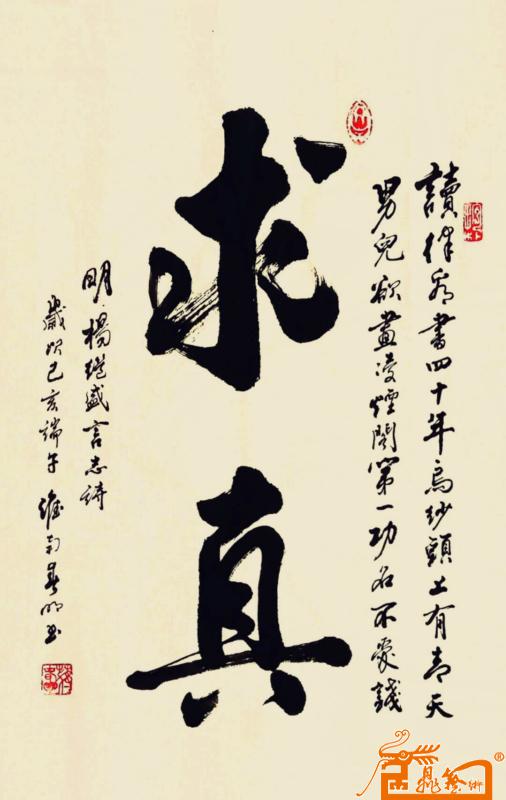 讀律看書四十年烏紗頭上有青天
男兒欲畫淩煙閣第一功名不愛錢
求真
明楊继盛言志詩
歲次己亥端午淮南春明书